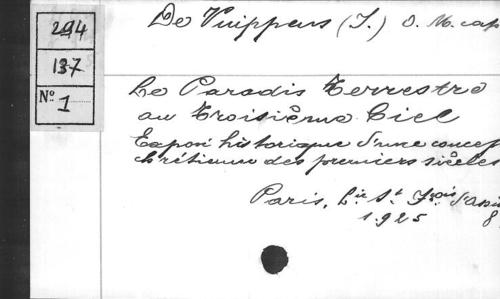 294
137
Nº 1
De Vuippens (I.) O. M. cap
Le Paradis Terrestre
au Troisième Ciel
Exposé historique d'une concep
chrétienne des premiers siècles
Paris, Lie St Frois d'Assis
1925 8